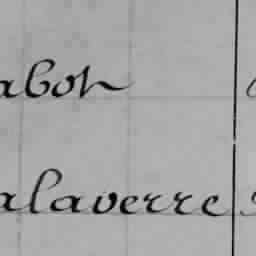 abot
alaverre